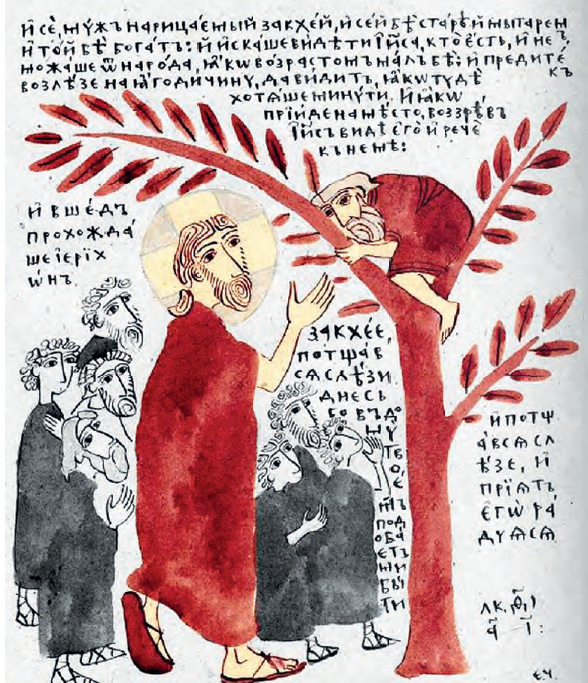 И҆ сѐ, мꙋ́жъ нарица́емый закхе́й, и҆ се́й бѣ̀ старѣ́й мытарем
и҆ то́й бѣ̀ бога́тъ: и҆ и҆ска́ше ви́дѣти і҆и҃са, кто̀ є҆́сть, и҆ не
можаше ѿ наро́да, ꙗ҆́кѡ во́зрастомъ ма́лъ бѣ̀: и҆ предите́
къ
возлѣ́зе на ꙗ҆годичину, да ви́дитъ, ꙗ҆́кѡ тудѣ̀
хотѧ́ше минути. И҆ ꙗ҆́кѡ
прїи́де на мѣ́сто, воззрѣ́въ
і҆и҃съ ви́дѣ є҆го̀ и҆ речѐ
къ немꙋ̀:
И҆ вше́дъ
прохожда́
ше і҆ері́х
ѡ҆нъ.
закхе́е,
потща́в
сѧ слѣ́зи
дне́сь
бо въ до
мꙋ̀
тво
е́
мъ
под
оба
етъ
ми
бы́
ти
И҆ потщ
а́всѧ сл
ѣ́зе, и҆
прїѧ́тъ
є҆гѡ̀ ра́
дуѧсѧ
лк, ѳ҃і
а҃ – і҃:
еч.